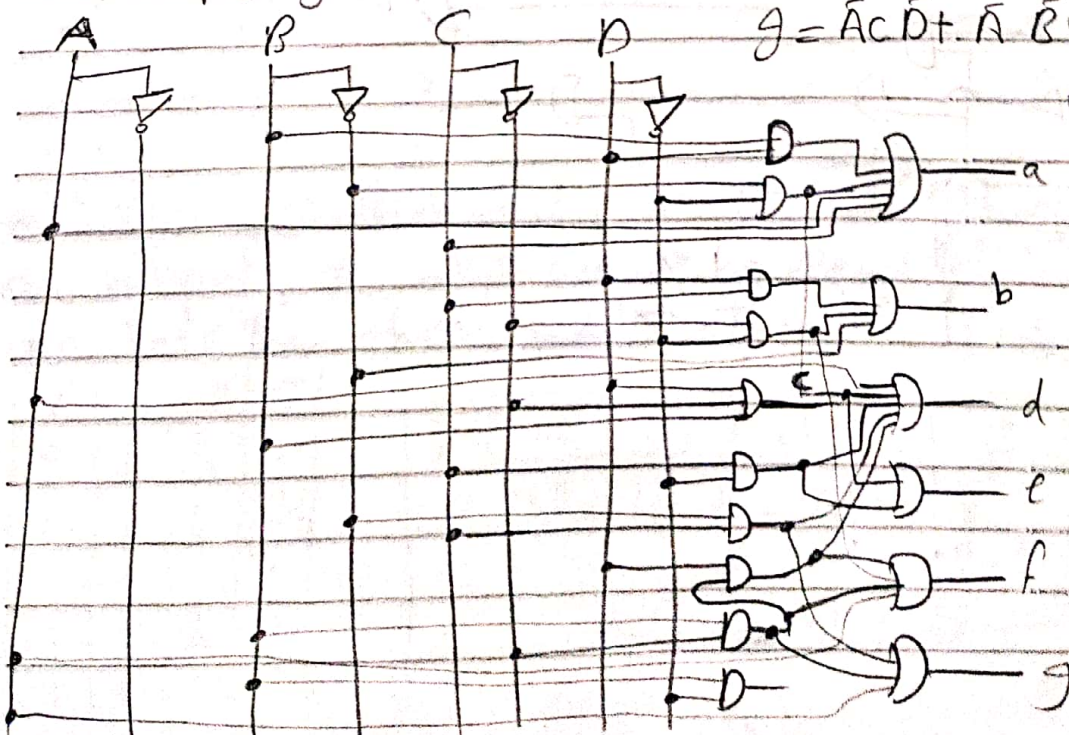 A B C D g = ĀCD̄ + Ā B̄
a
b
c
d
e
f
g